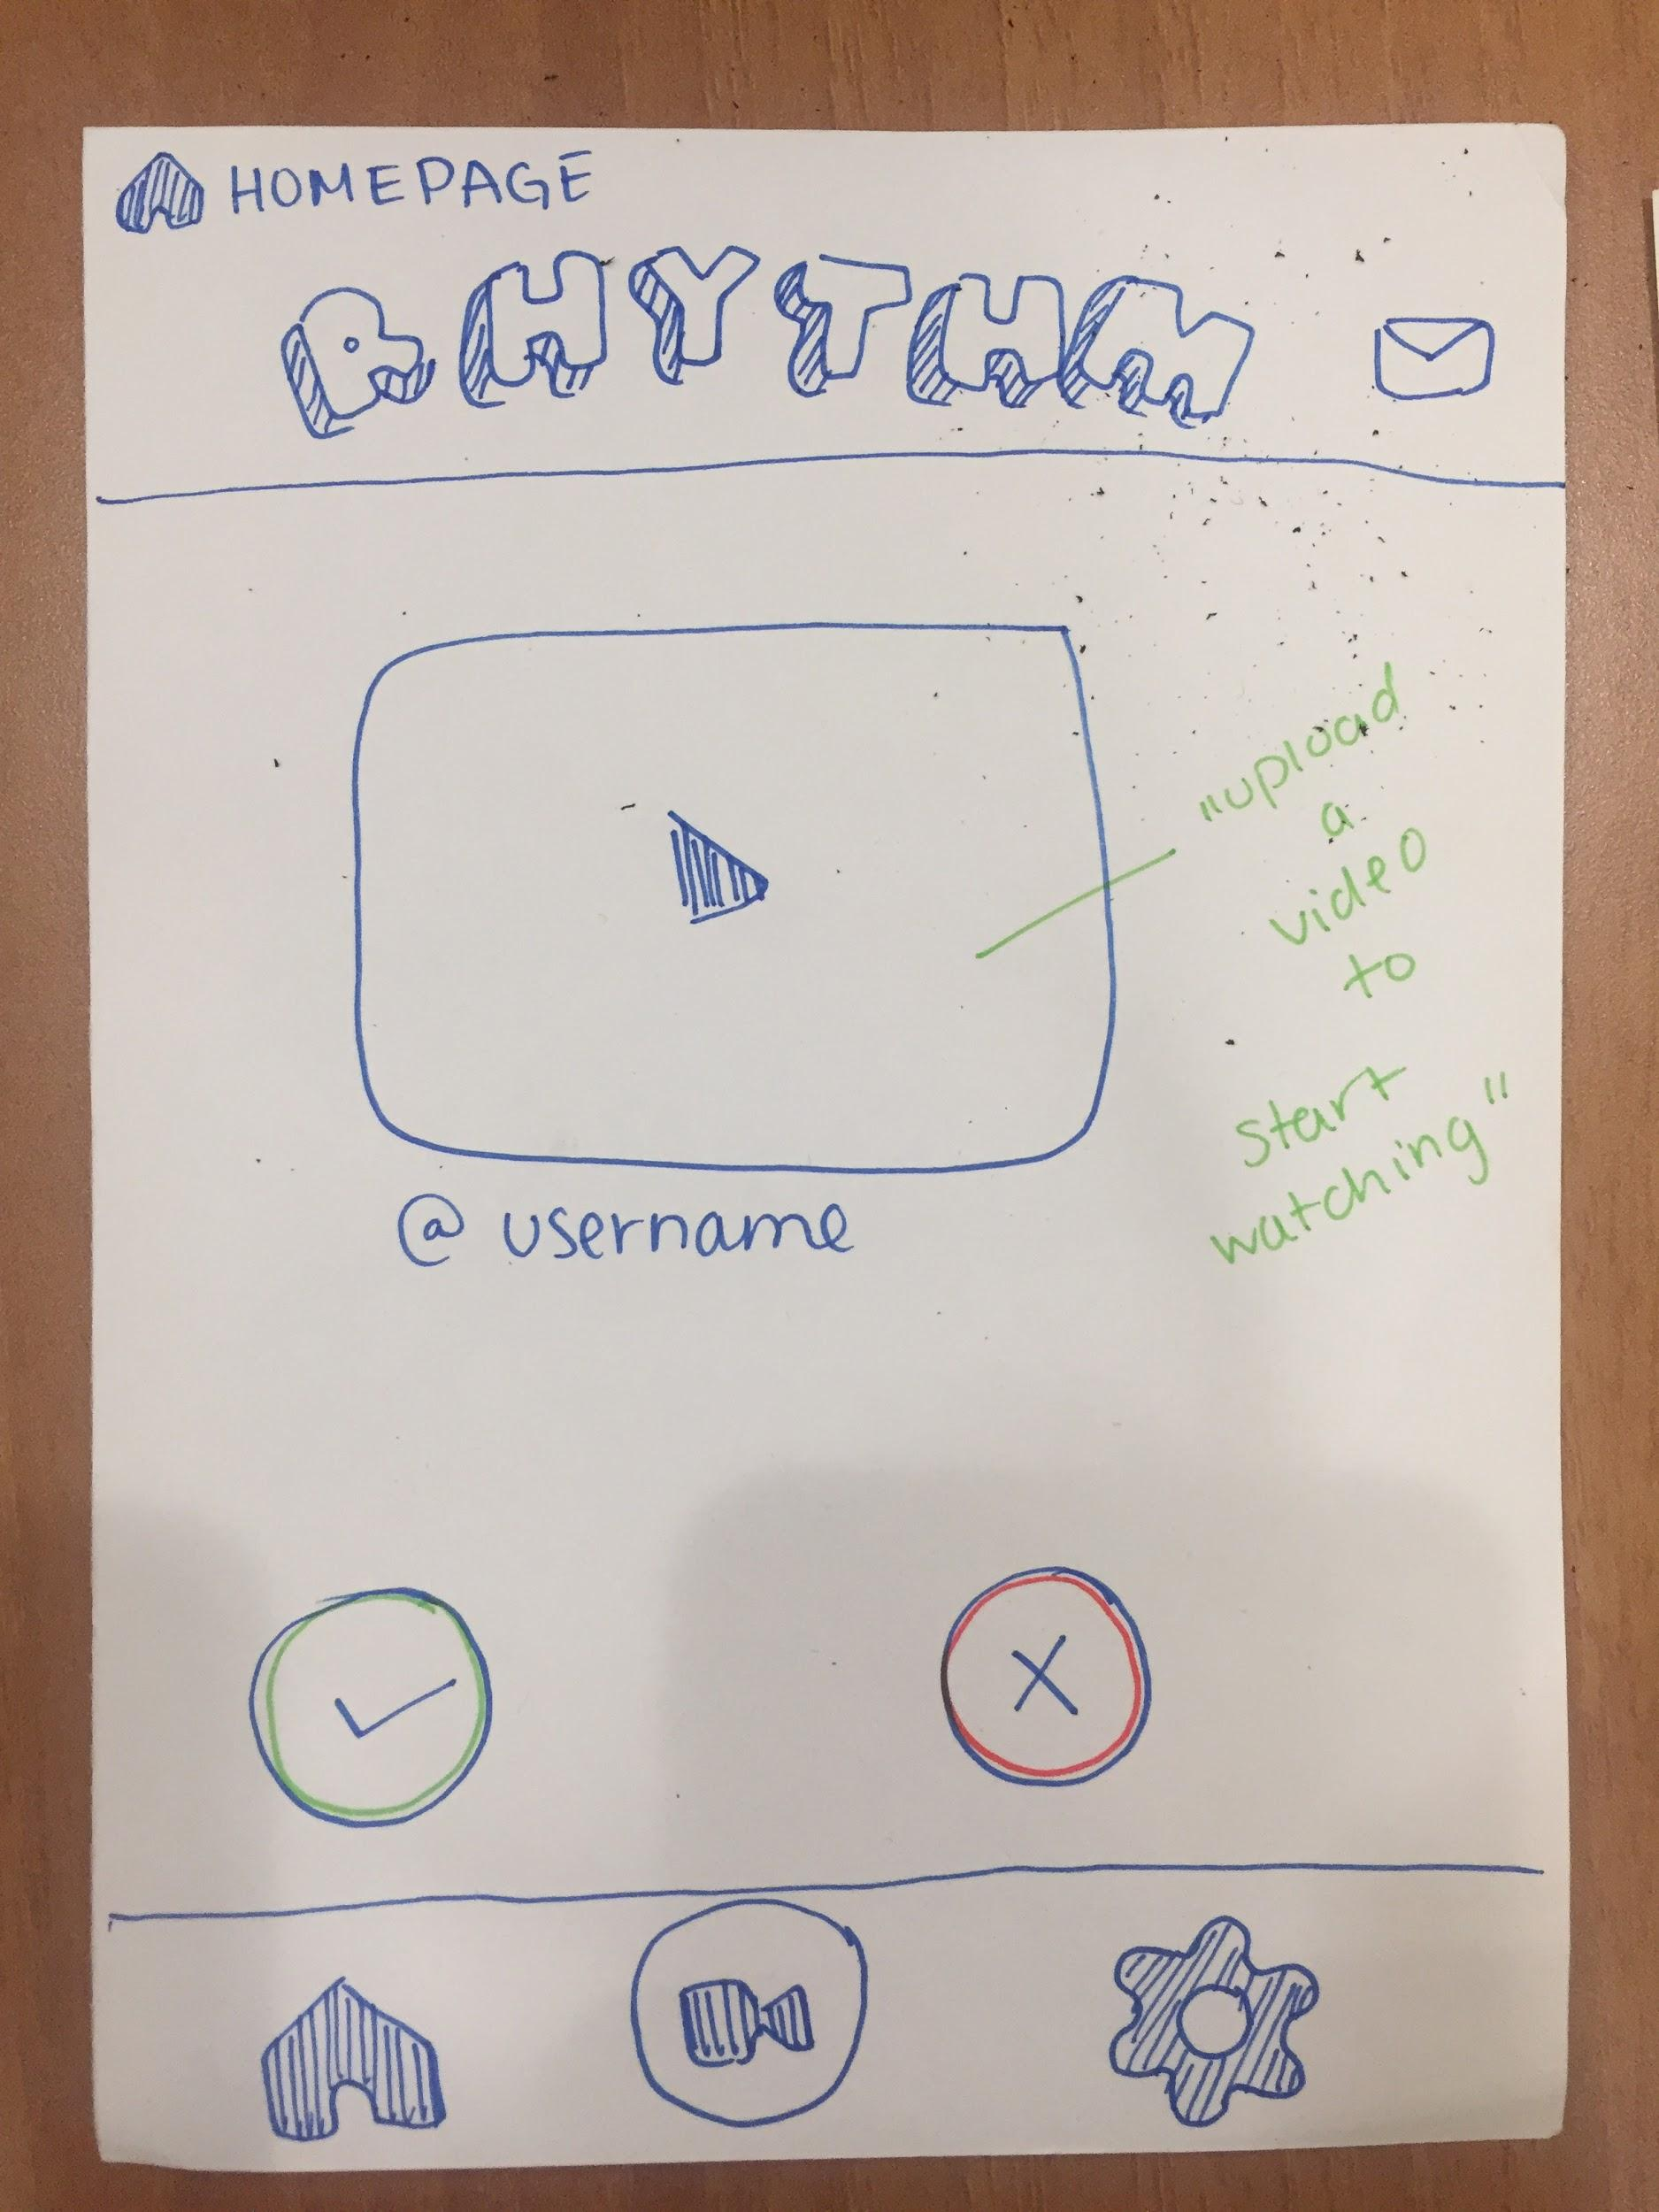 HOMEPAGE
RHYTHM
"upload
a
video
to
start
watching"
@ username